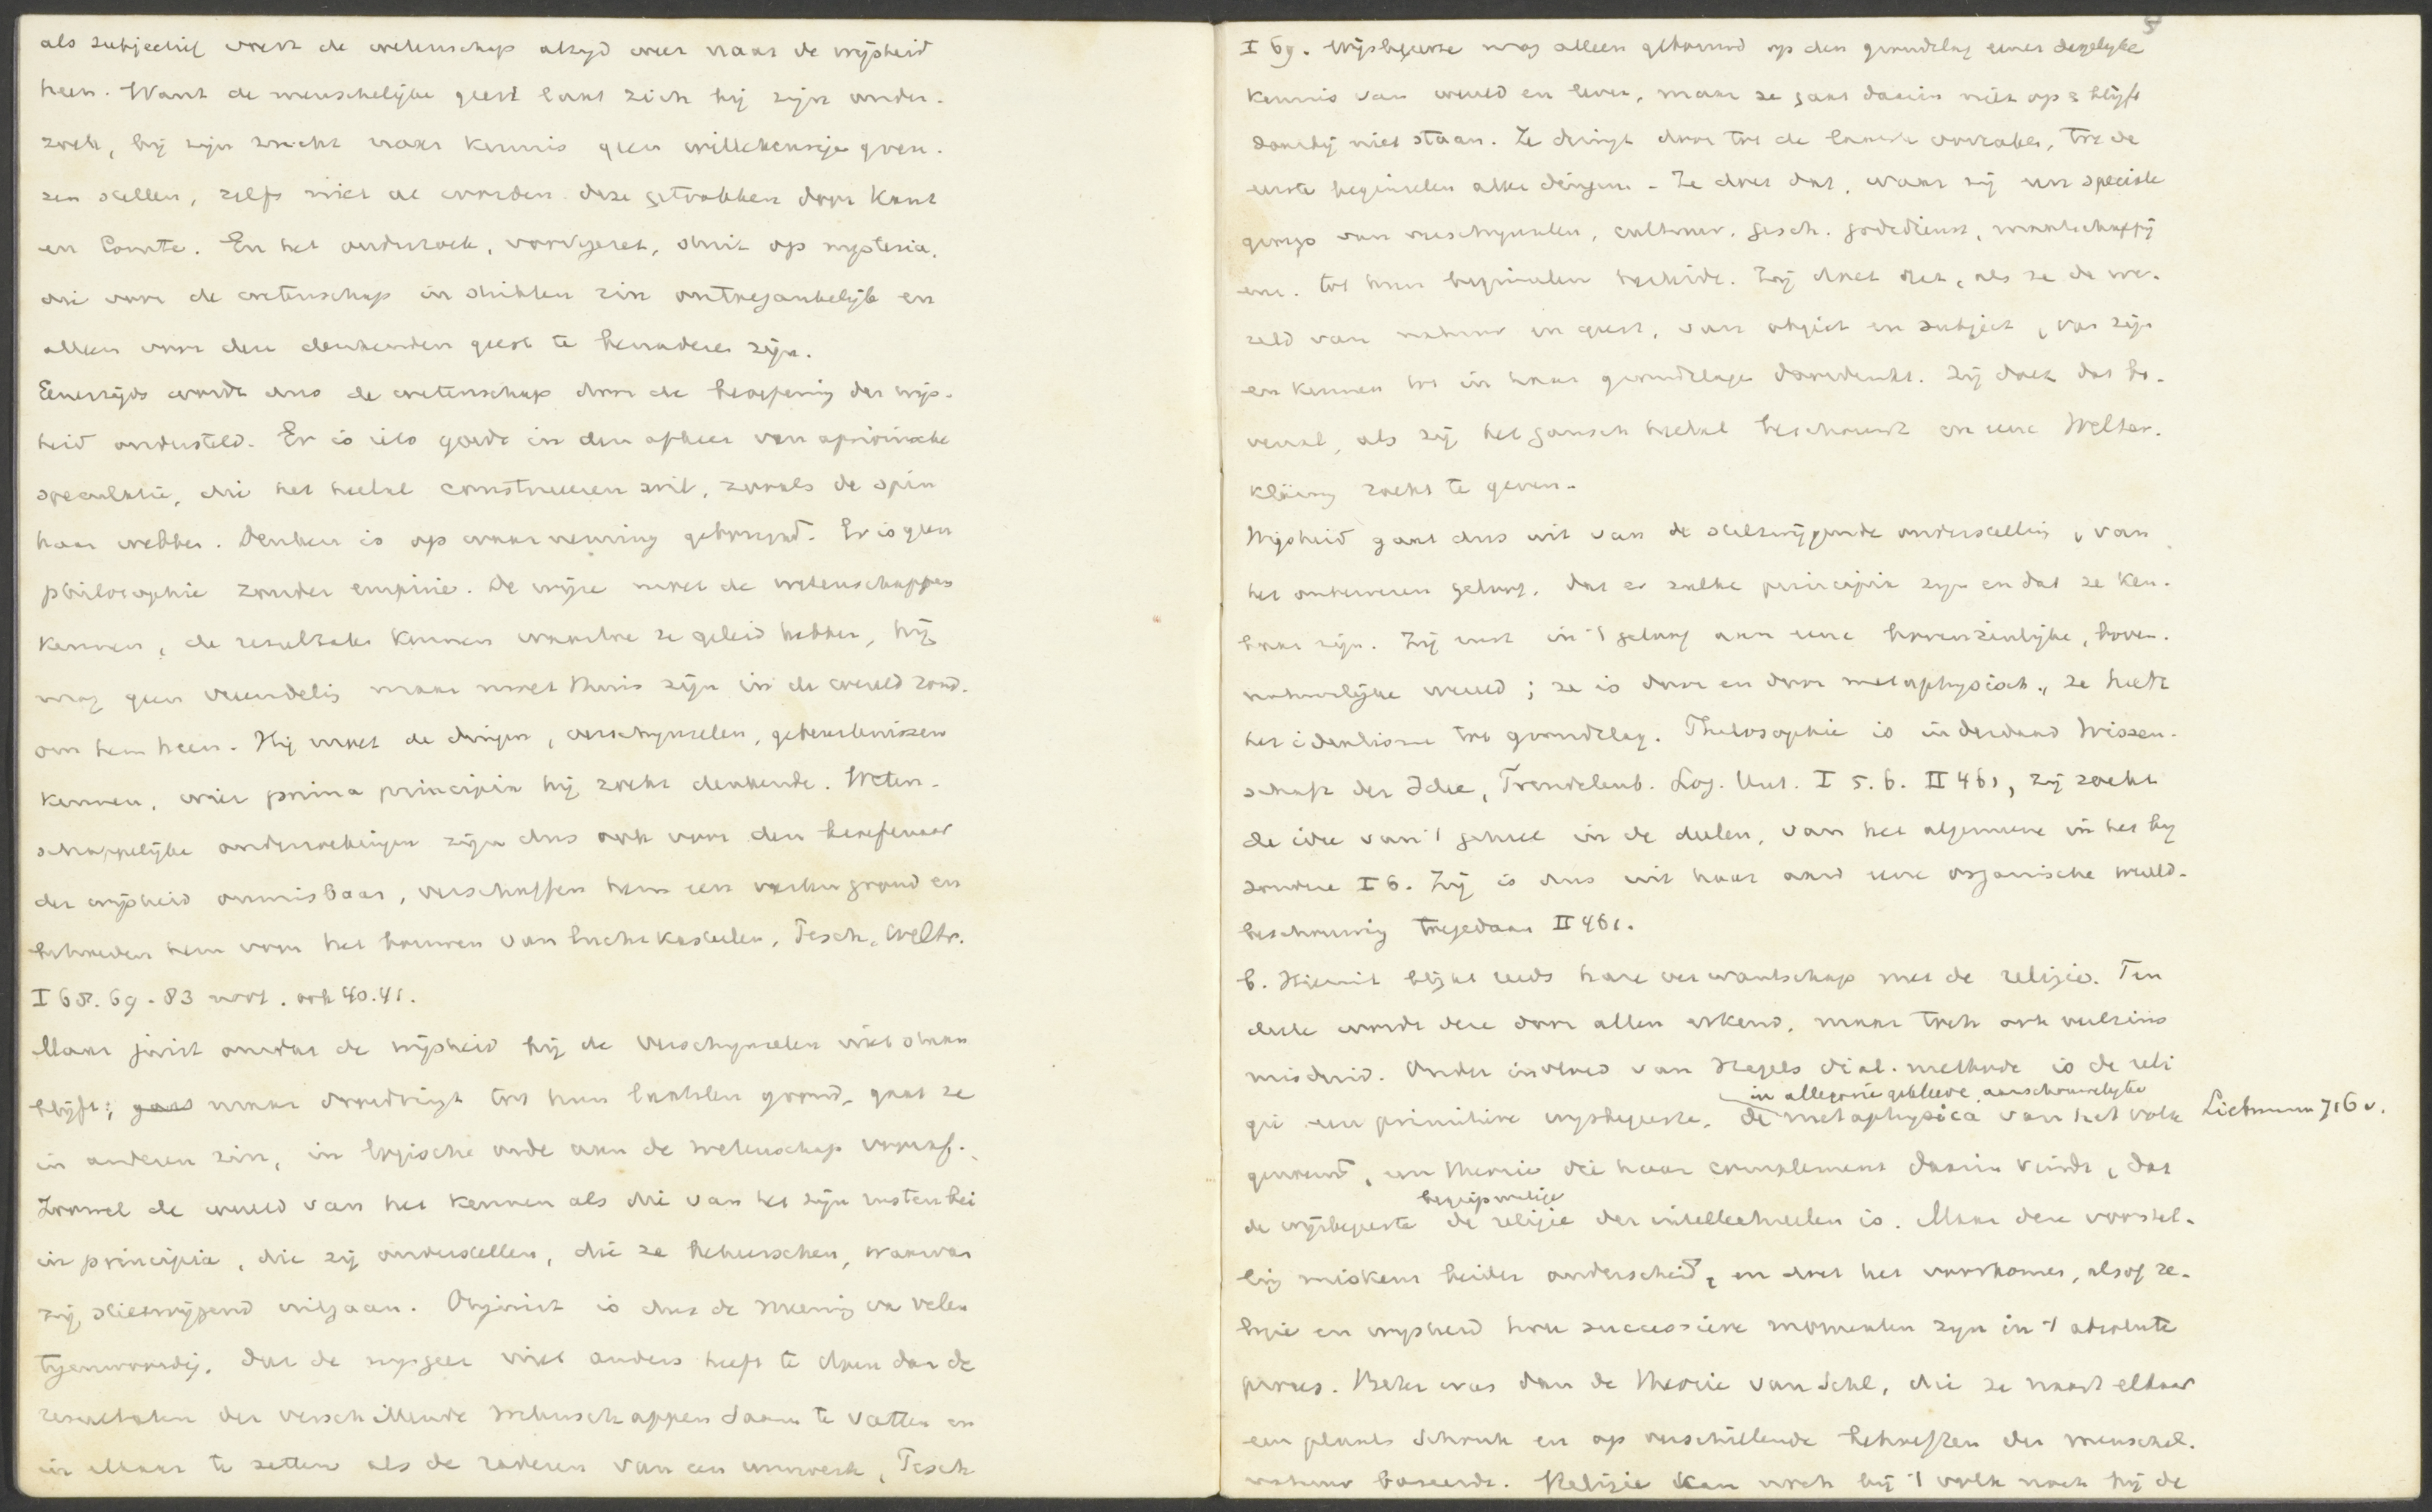 als subjectief voert de wetenschap altyd weer naar de wijsheid
heen. Want de menschelijke geest laat zich bij zijn onder-
zoek, bij zijn zucht naar kennis geen willekeurige gren-
zen stellen, zelfs niet al worden deze getrokken door Kant
en Comte. En het onderzoek, voortgezet, stuit op mysteria,
die voor de wetenschap in strikten zin ontoegankelijk en
alleen voor den denkenden geest te benaderen zijn.
Eenerzijds wordt dus de wetenschap door de beoefening der wijs-
heid ondersteld. Er is iets goeds in den afkeer van apriorische
speculatie, die het heelal construeeren wil, zooals de spin
haar webbe. Denken is op waarneming gebouwd. Er is geen
philosophie zonder empirie. De wijze moet de wetenschappen
kennen, de resultaten kennen waartoe ze geleid hebben, hij
mag geen vreemdeling maar moet thuis zijn in de wereld rond-
om hem heen. Hij moet de dingen, verschijnselen, gebeurtenissen
kennen, wier prima principia hij zoekt denkende. Weten-
schappelijke onderzoekingen zijn dus ook voor den beoefenaar
der wijsheid onmisbaar, verschaffen hem een vasten grond en
behoeden hem voor het bouwen van luchtkasteelen, Pesch, Weltr.
I 68. 69. 83 . ook 40. 41.
Maar juist omdat de wijsheid bij de verschijnselen niet staan
blijft; gaat maar doordringt tot hun laatsten grond, gaat ze
in anderen zin, in logische orde aan de wetenschap vooraf.
Zoowel de wereld van het kennen als die van het zijn rusten bei
in principia, die zij onderstellen, die ze beheerschen, waarvan
zij stilzwijgend uitgaan. Onjuist is dus de meening van velen
tegenwoordig, dat de wijsgeer niet anders heeft te doen dan de
resultaten der verschillende wetenschappen saam te vatten en
in elkaar te zetten als de raderen van een uurwerk, Pesch
I 69. Wijsbegeerte mag alleen gebouwd op den grondslag eener degelyke
kennis van wereld en leven, maar ze gaat daarin niet op & blijft
daarbij niet staan. Ze dringt door tot de laatste oorzaken, tot de
eerste beginselen aller dingen. Ze doet dat, waar zij een speciale
groep van verschijnselen, cultuur, gesch. godsdienst, maatschappij
enz. tot hun beginselen herleidt. Zij doet het, als ze de we-
reld van natuur en geest, van object en subject, van zijn
en kennen tot in haar grondslagen doordenkt. Zij doet dat bo-
venal, als zij het gansch heelal beschouwt en eene Welter-
klärung zoekt te geven.
Wijsheid gaat dus uit van de stilzwijgende onderstelling, van
het geloof, dat er zulke principia zijn en dat ze ken-
baar zijn. Zij rust in 't geloof aan eene bovenzinlijke, boven-
natuurlijke wereld; ze is door en door metaphysisch, ze heeft
het idealisme tot grondslag. Philosophie is inderdaad Wissen-
schaft der Idee, Trendelenb. Log. Unt. I 5. 6. II 461, zij zoekt
de idee van 't geheel in de deelen, van het algemeene in het by
zondere I 6. Zij is dus uit haar aard eene organische wereld-
beschouwing toegedaan II 461.
b. Hieruit blijkt reeds hare verwantschap met de religie. Ten
deele wordt deze door allen erkend, maar toch ook veelszins
misduid. Onder invloed van Hegels dial. methode is de reli
in allegorie gekleede, aanschouwelyke
gie een primitieve wijsbegeerte, de metaphysica van het volk Liebmann 716 v.
genoemd, een theorie die haar complement daarin vindt, dat
de wijsbegeerte de religie der intellectueelen is. Maar deze voorstel-
ling miskent beider onderscheid, en doet het voorkomen, alsof re-
ligie en wijsheid twee successieve momenten zijn in 't absolute
proces. Beter was dan de theorie van Schl., die ze naast elkaar
een plaats schonk en op verschillende behoeften der menschel.
natuur baseerde. Religie kan noch bij 't volk noch bij de